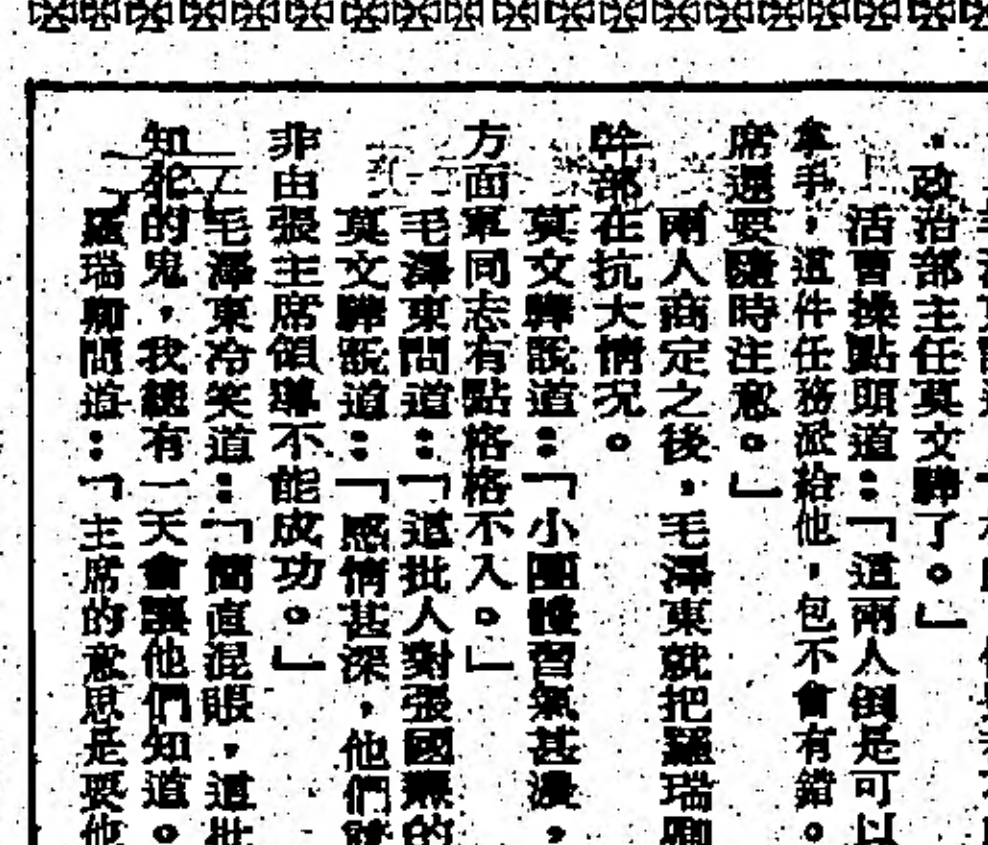 ・政治部主任莫文驊了。」
活曹操點頭道：「這兩人倒是可以
拿手，這件任務派給他，包不會有錯。
席還要隨時注意。」
兩人商定之後，毛澤東就把羅瑞卿
幹部在抗大情況。
莫文驊說道：「小團體習氣甚濃，
方面軍同志有點格格不入。」
毛澤東問道：「這批人對張國燾的
莫文驊說道：「感情甚深，他們
非由張主席領導不能成功。」
毛澤東冷笑道：「簡直混賬，這批
知死的鬼，我總有一天會讓他們知道。
羅瑞卿問道：「主席的意思是要他